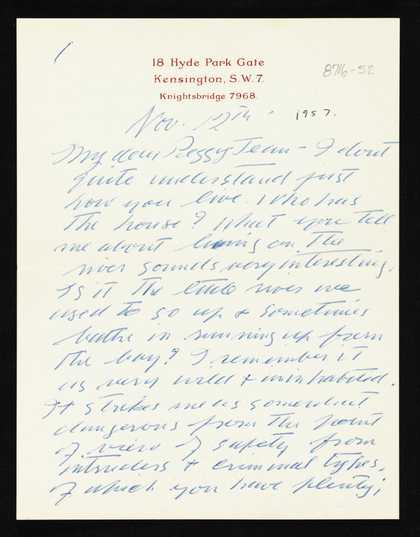 18 Hyde Park Gate
Kensington, S.W.7.
Knightsbridge 7968.
8716-52
Nov. 12th 1957.
My dear Peggy Jean - I don't
quite understand just
how you live. Who has
the house? What you tell
me about living on the
river sounds very interesting.
Is it the little river we
used to go up & sometimes
bathe in running up from
the bay? I remember it
as very wild & uninhabited.
It strikes me as somewhat
dangerous from the point
of view of safety from
intruders & criminal types,
of which you have plenty;